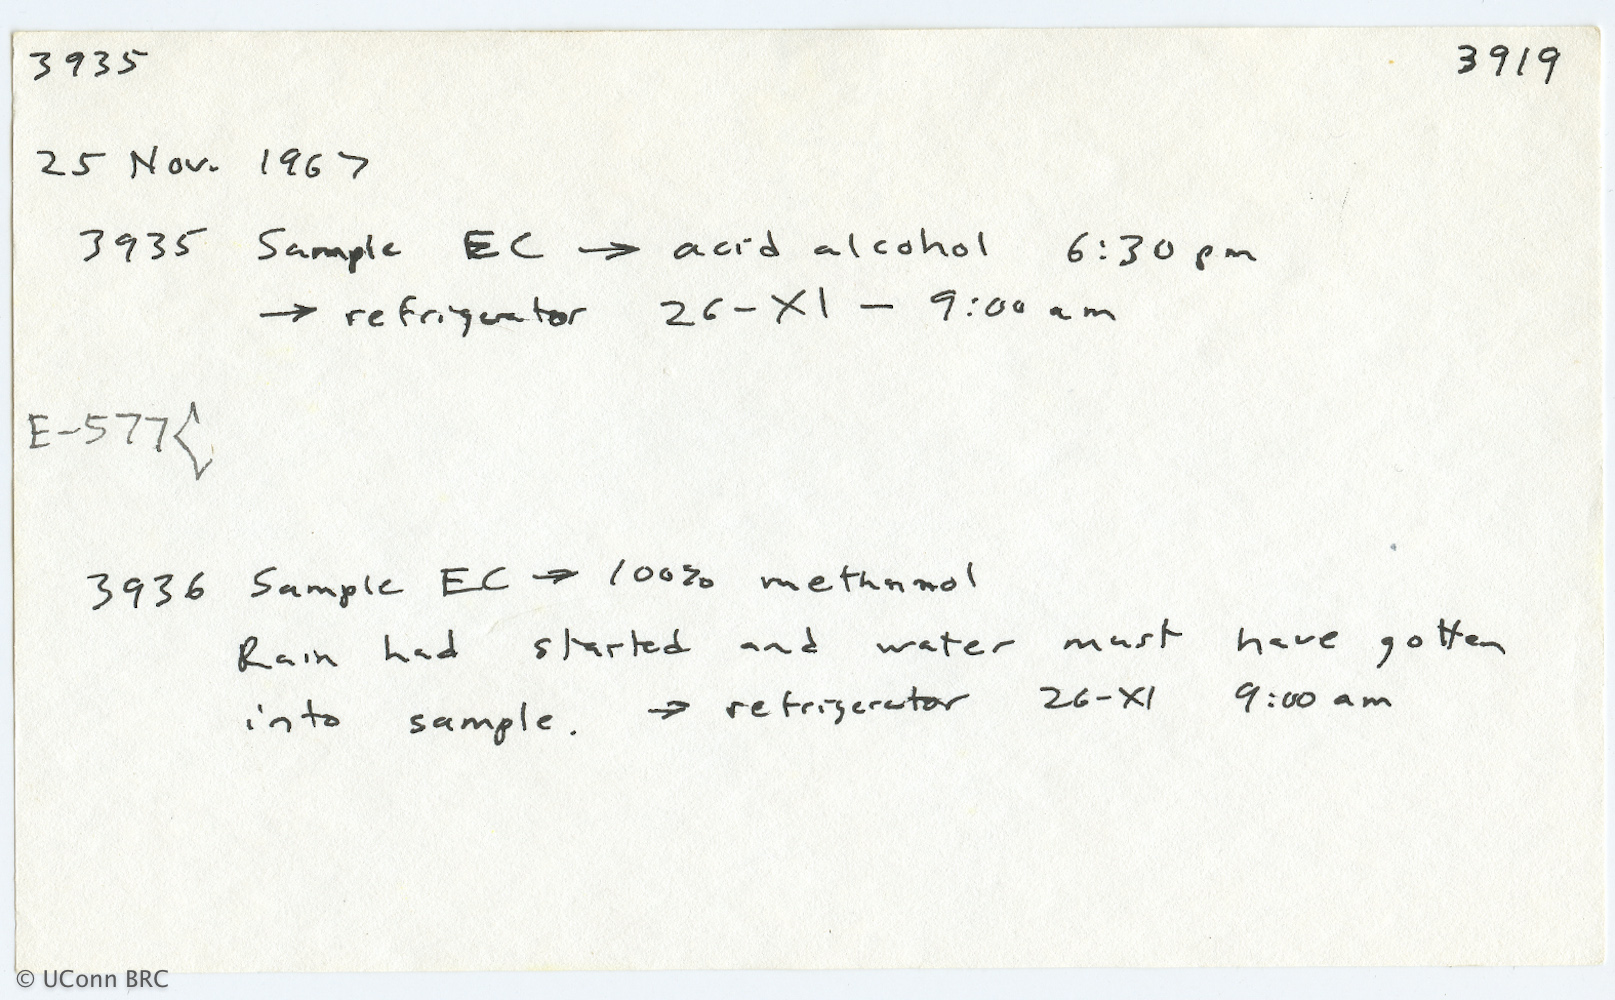 3935 3919
25 Nov. 1967
3935 Sample EC → acid alcohol 6:30 pm
→ refrigerator 26-XI - 9:00 am
E-577{
3936 Sample EC → 100% methanol
Rain had started and water must have gotten
into sample. → refrigerator 26-XI 9:00 am
© UConn BRC